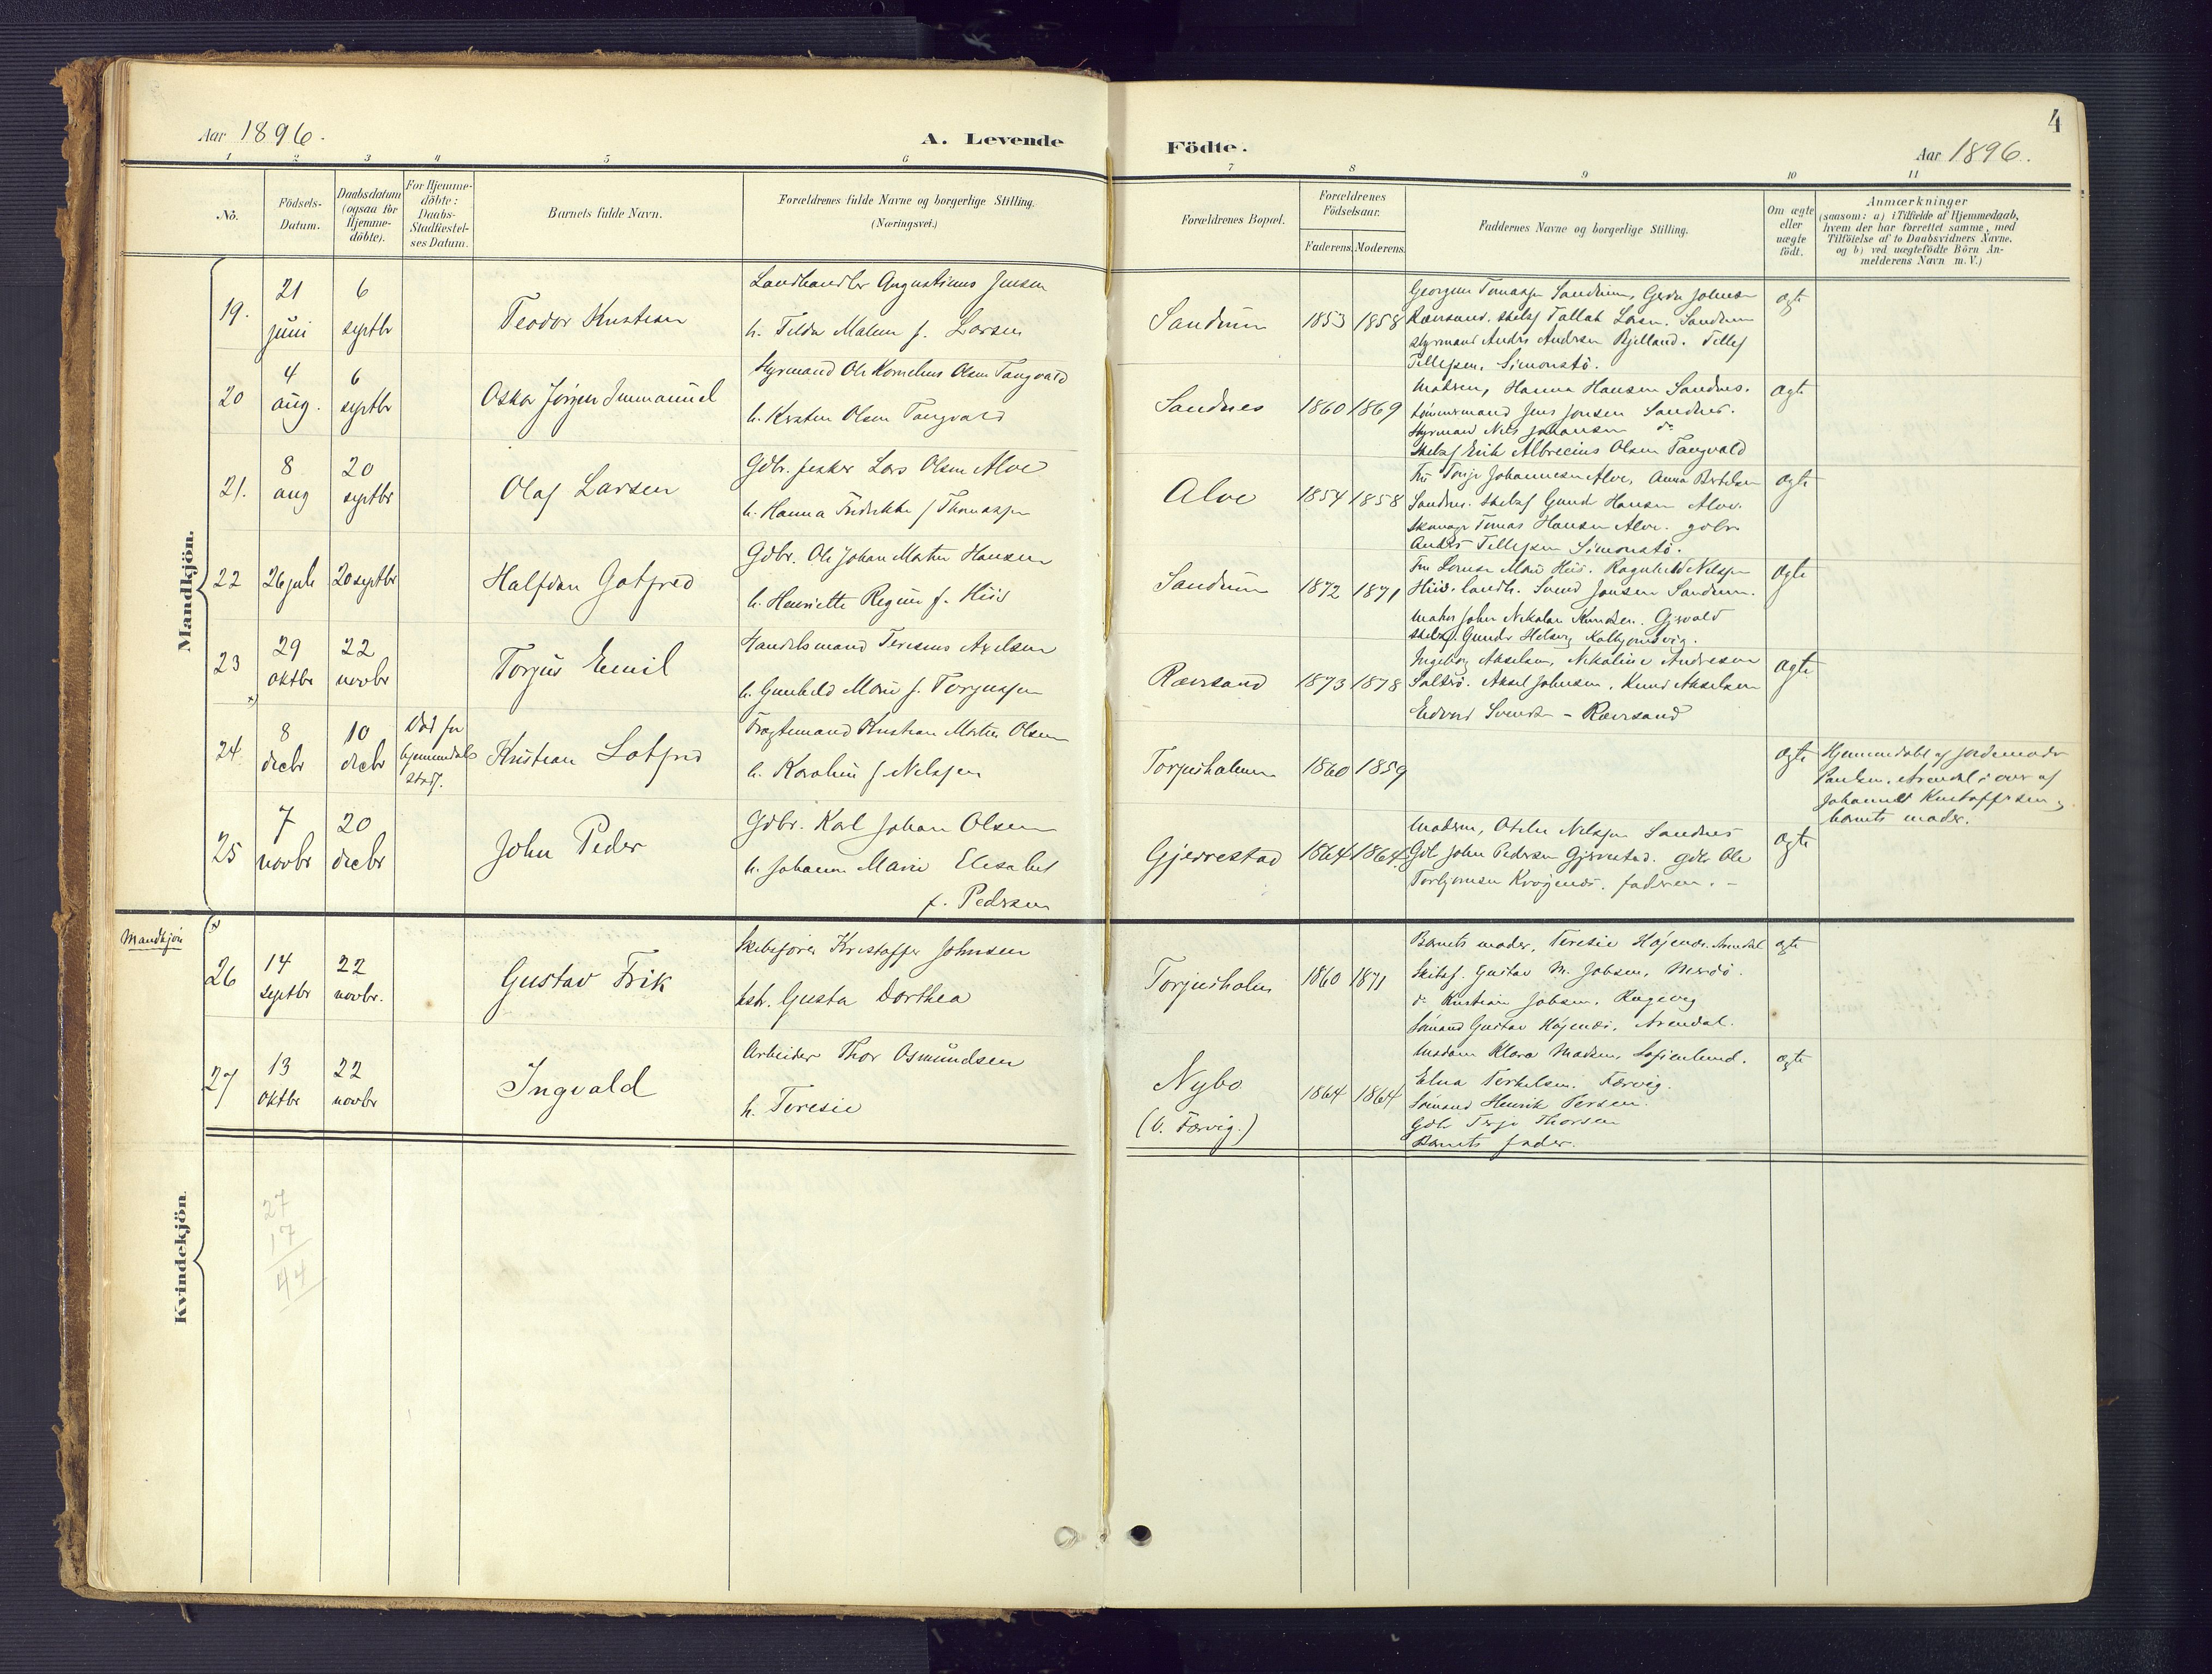 4
Aar 1896.
A. Levende Födte.
Aar 1896.
1 2 3 4 5 6 7 8 9 10 11
No.
Födsels-
Datum.
Daabsdatum
(ogsaa for
Hjemme-
döbte).
For Hjemme-
döbte:
Daabs-
Stadfæstel-
ses Datum.
Barnets fulde Navn.
Forældrenes fulde Navne og borgerlige Stilling.
(Næringsvei.)
Forældrenes Bopæl.
Forældrenes
Födselsaar.
Faderens. Moderens.
Faddernes Navne og borgerlige Stilling.
Om ægte
eller
uægte
födt.
Anmærkninger
(saasom: a) i Tilfælde af Hjemmedaab,
hvem der har forrettet samme, med
Tilföielse af to Daabsvidners Navne.
og b) ved uægtefödte Börn An-
melderens Navn m. V.)
Mandkjön.
19.
21
juni
6
septbr
Teodor Kristian
Landhandler Augustinus Jensen
h. Tilda Malene f. Larsen
Sandum
1853 1858
Georgine Tomassen Sandum, Gerda Johnsen
Rævesand. skibsf Tallak Larsen. Sandum
styrmand Andrs Andersen Bjelland. Tellef
Tellefsen. Simonstö.
ægte
20
4
aug.
6
septbr
Oskar Jörgen Immanuel
Styrmand Ole Kornelius Olsen Tangvald
h. Kirsten Olsen Tangvald
Sandnes
1860 1869
Madsen, Hanna Hansen Sandnes.
tömmermand Jens Jonsen Sandnes.
Styrmand Nils Johansen do
Skibsf Erik Albrecius Olsen Tangvald
ægte
21.
8
aug
20
septbr
Olaf Larsen
Gdbr. fisker Lars Olsen Alve
h. Hanna Fredrikke f Thomassen
Alve
1854 1858
Fru Terje Johannesen Alve, Anna Bertelsen
Sandnes. skibsf Gunder Hansen Alve.
Tomas Hansen Alve. gdbr
Andrs Tellefsen Simonstö.
ægte
22
26 juli
20 septbr
Halfdan Gotfred
Gdbr. Ole Johan Martin Hansen
h. Henriette Regine f. Hiis
Sandum
1872 1871
Fru Lovise Marie Hiis. Ragnhild Nilssen
Hiis. landh. Svend Jensen Sandum.
John Nikolai Knudsen. Gjervold
skibsf. Gunder Helseng Kalvjomsvig.
ægte
23
29
oktbr
22
novbr
Torjus Emil
Handelsmand Teresius Axelsen
h. Gunhild Marie f. Torjussen
Rævesand
1873 1878
Ingeborg Akselsen, Nikoline Andresen
Salterö. Aksel Johnsen. Knud Akselsen
Edvard Svends – Rævesand
ægte
24.
8
decbr
10
decbr
Död før
hjemmedaabs
stadf.
Kristian Lotfred
Fragtemand Kristian Martin Olsen
h. Karoline f Nilssen
Torjusholmen
1860 1859
ægte
Hjemmedöbt af jordemoder
Paulsen, Arendal i over af
Johannes Kristoffersen og
barnets moder.
25
7
novbr
20
decbr
John Peder
Gdbr. Karl Johan Olsen
h. Johanne Marie Elisabet
f. Pedersen
Gjerrestad
1864 1864
Moderen, Otelie Nilssen Sandnes
Gdb John Pedersen Gjerrestad. gdbr Ole
Torbjornsen Krogenes. faderen. –
ægte
Mandkjön
26
14
septbr
22
novbr.
Gustav Frik
Skibsförer Kristoffer Johnsen
hstr. Gusta Dorthea
Torjusholm
1860 1871
Barnets moder, Teresie Höjenes. Arendal
Skibsf. Gustav M. Jobsen, Merdö.
do Kristian Jobsen. Rægevig
Sömand Gustav Höjenes, Arendal.
ægte
27
13
oktbr
22
novbr
Ingvald
Arbeider Thor Osmundsen
h. Teresie
Nybo
(v. Færvig.)
1864 1864
Madam Klara Madsen, Sofienlund.
Elna Terkelsen. Færvig.
Sömand Henrik Persen.
Gdbr Terje Thorsen
Barnets fader.
ægte
Kvindekjön.
27
17
44